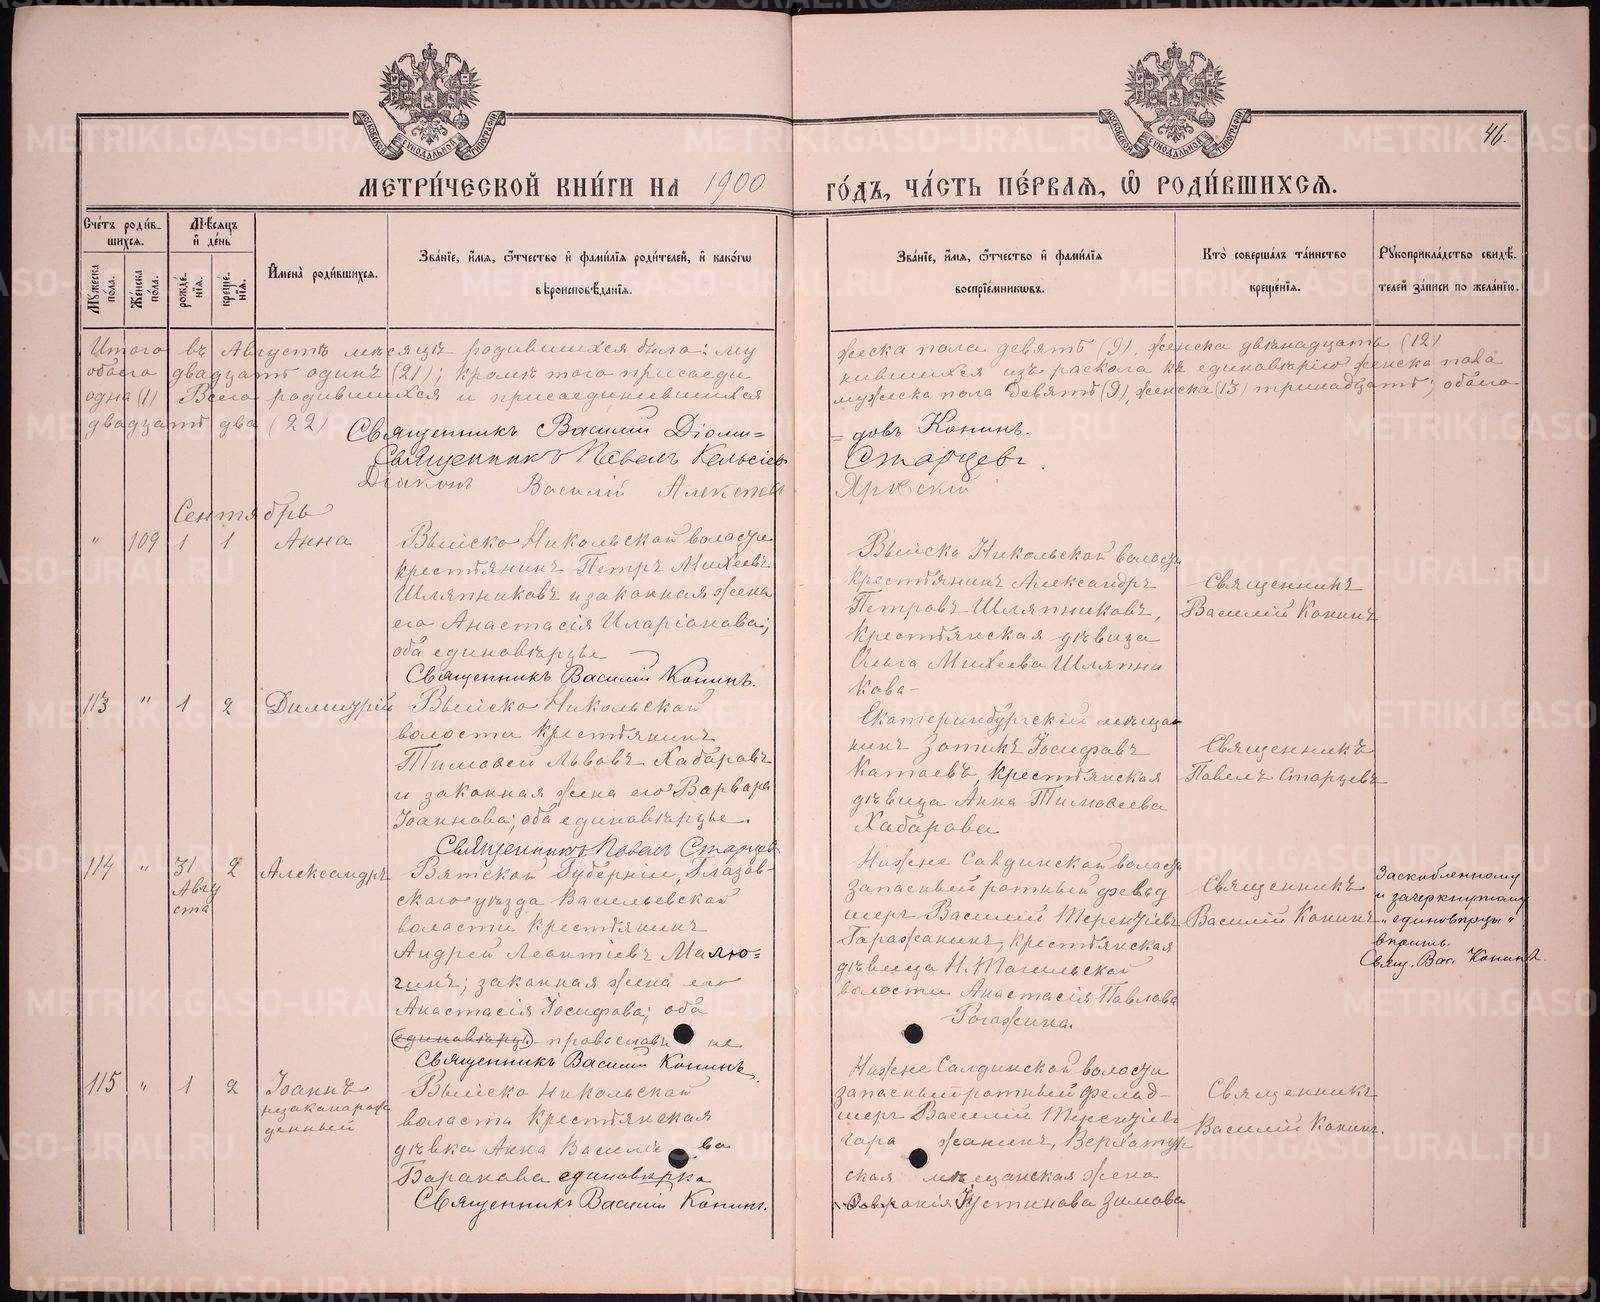 МЕТРИ́ЧЕСКОЙ КНИ́ГИ НА 1900
ГО́ДЪ, ЧА́СТЬ ПЕ́РВАЯ, Ѿ РОДИ́ВШИХСЯ.
46.
МОСКОВСКОЙ СѴНОДАЛЬНОЙ ТИПОГРАФІИ
МОСКОВСКОЙ СѴНОДАЛЬНОЙ ТИПОГРАФІИ
Сче́тъ роди́в-
шихся.
Мѣ́сяцъ
и҆ де́нь
Му́жеска
по́ла.
Же́нска
по́ла.
рожде́-
нїя.
креще́-
нїя.
И҆мена̀ роди́вшихся.
Зва́нїе, и҆́мя, ѻ҆́тчество и҆ фами́лїя роди́телей, и҆ како́гѡ
вѣроисповѣ́данїя.
Зва́нїе, и҆́мя, ѻ҆́тчество и҆ фами́лїя
воспрїе́мникѡвъ.
Кто̀ соверша́лъ та́инство
креще́нїя.
Рꙋкоприкла́дство свидѣ́-
телей за́писи по жела́нїю.
Итого въ Августѣ мѣсяцѣ родившихся было: му
жеска пола девять (9), женска двѣнадцать (12)
обоего двадцать одинъ (21); кромѣ того присоеди
нившихся изъ раскола къ единовѣрію женска пола
одна (1) Всего родившихся и присоединившихся
мужеска пола девять (9), женска (13) тринадцать; обоего
двадцать два (22)
Священникъ Василій Діоми=
=довъ Конинъ.
Священникъ Павелъ Кельсіевъ
Старцевъ.
Діаконъ Василій Алексѣевъ
Яровскій
Сентябрь
" 109 1 1 Анна
Выйско Никольской волости
крестьянинъ Петръ Михеевъ
Шляпниковъ и законная жена
его Анастасія Иларіонова;
оба единовѣрцы
Священникъ Василій Конинъ.
Выйско Никольской волости
крестьянинъ Александръ
Петровъ Шляпниковъ,
крестьянская дѣвица
Ольга Михеева Шляпни
кова-
Священникъ
Василій Конинъ
113 " 1 2 Димитрій
Выйско Никольской
волости крестьянинъ
Тимоѳей Львовъ Хабаровъ
и законная жена его Варвара
Іоаннова; оба единовѣрцы.
Священникъ Павелъ Старцевъ
Екатеринбургскій мѣща
нинъ Зотикъ Іосифовъ
Катаевъ, крестьянская
дѣвица Анна Тимоѳеева
Хабарова
Священникъ
Павелъ Старцевъ
114 " 31 Авгу
ста 2 Александръ
Вятской Губерніи, Глазов-
скаго уѣзда Васильевской
волости крестьянинъ
Андрей Леонтіевъ Малю=
гинъ; законная жена его
Анастасія Іосифова; оба
(единовѣрцы) православные
Священникъ Василій Конинъ.
Нижне Салдинской волости
запасный ротный фельд
шеръ Василій Терентіевъ
Гаражанинъ, крестьянская
дѣвица Н. Тагильской
волости Анастасія Павлова
Рогожина.
Священникъ
Василій Конинъ
Заскобленному
и зачеркнутому
"единовѣрцы"
вѣрить.
Свящ. Вас. Конинъ.
115 " 1 2 Іоаннъ
незаконнорож
денный
Выйско Никольской
волости крестьянская
дѣвка Анна Василіева
Баранова единовѣрка
Священникъ Василій Конинъ.
Нижне Салдинской волости
запасный ротный фельд-
шеръ Василій Терентіевъ
Гаражанинъ, Верхотур
ская мѣщанская жена
Іустинова Зимова
Священникъ
Василій Конинъ.